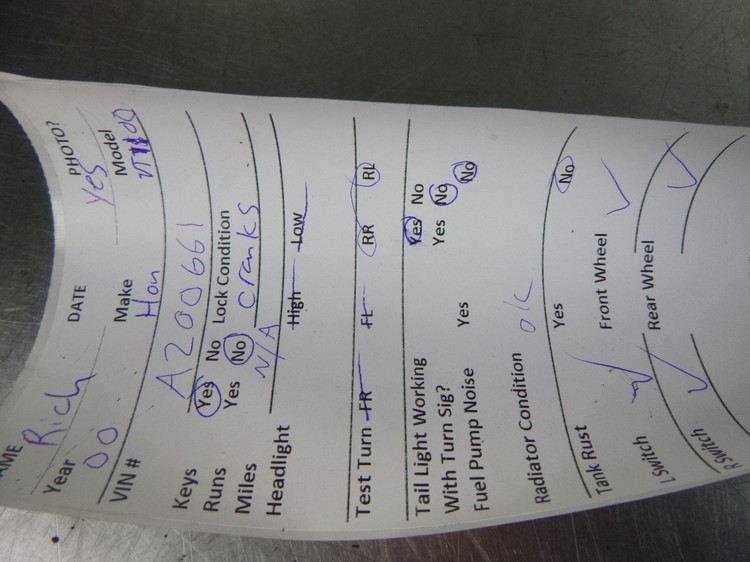 NAME Rich DATE PHOTO? Yes
Year 00 Make Hon Model
VIN # A200661
Keys Yes No Lock Condition
Runs Yes No cranks
Miles N/A
Headlight High Low
Test Turn FR FL RR RL
Tail Light Working Yes No
With Turn Sig? Yes No
Fuel Pump Noise Yes No
Radiator Condition ok
Tank Rust Yes No
L Switch Front Wheel
R Switch Rear Wheel